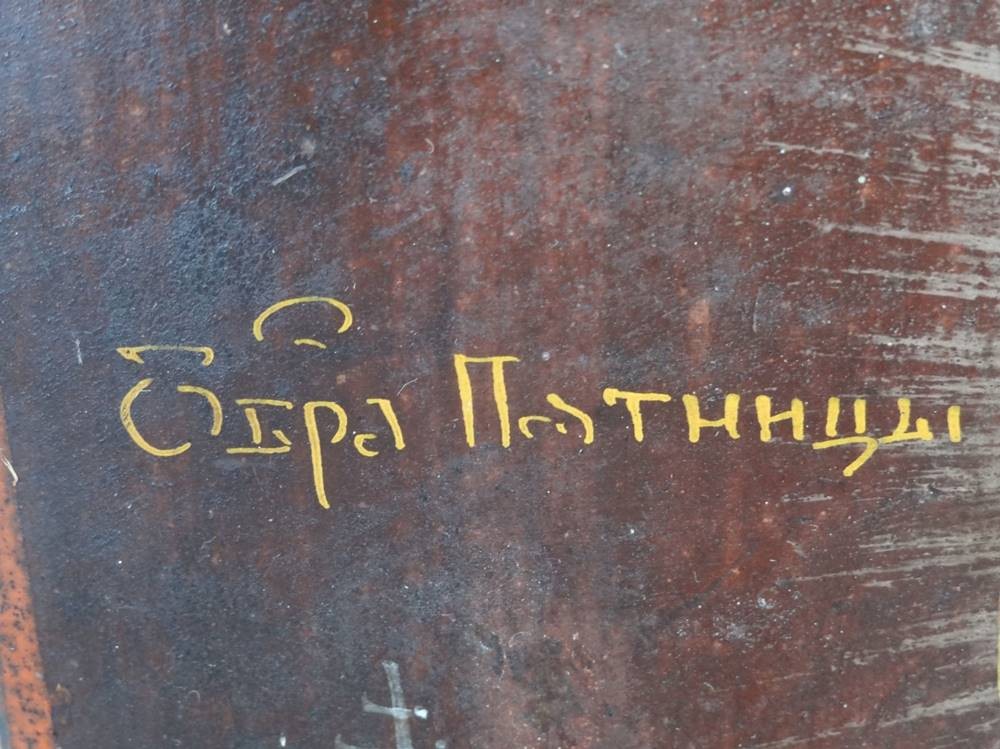 Обра Пѧтницы